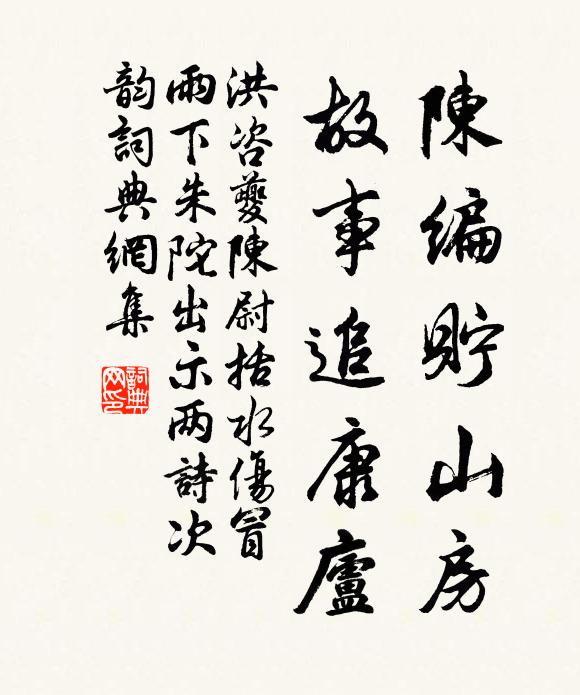 陳編貯山房
故事追康廬
洪咨夔陳尉括水傷冒
雨下朱陀出示两詩次
韵詞典網集
詞典
网印